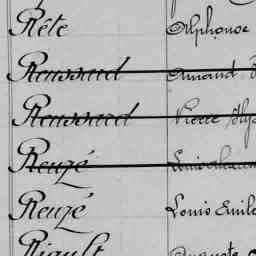 Rête Alphonse
Roussaud Armand
Roussard Pierre
Reuzé Louis
Reuzé Louis Emile
Rigault Auguste